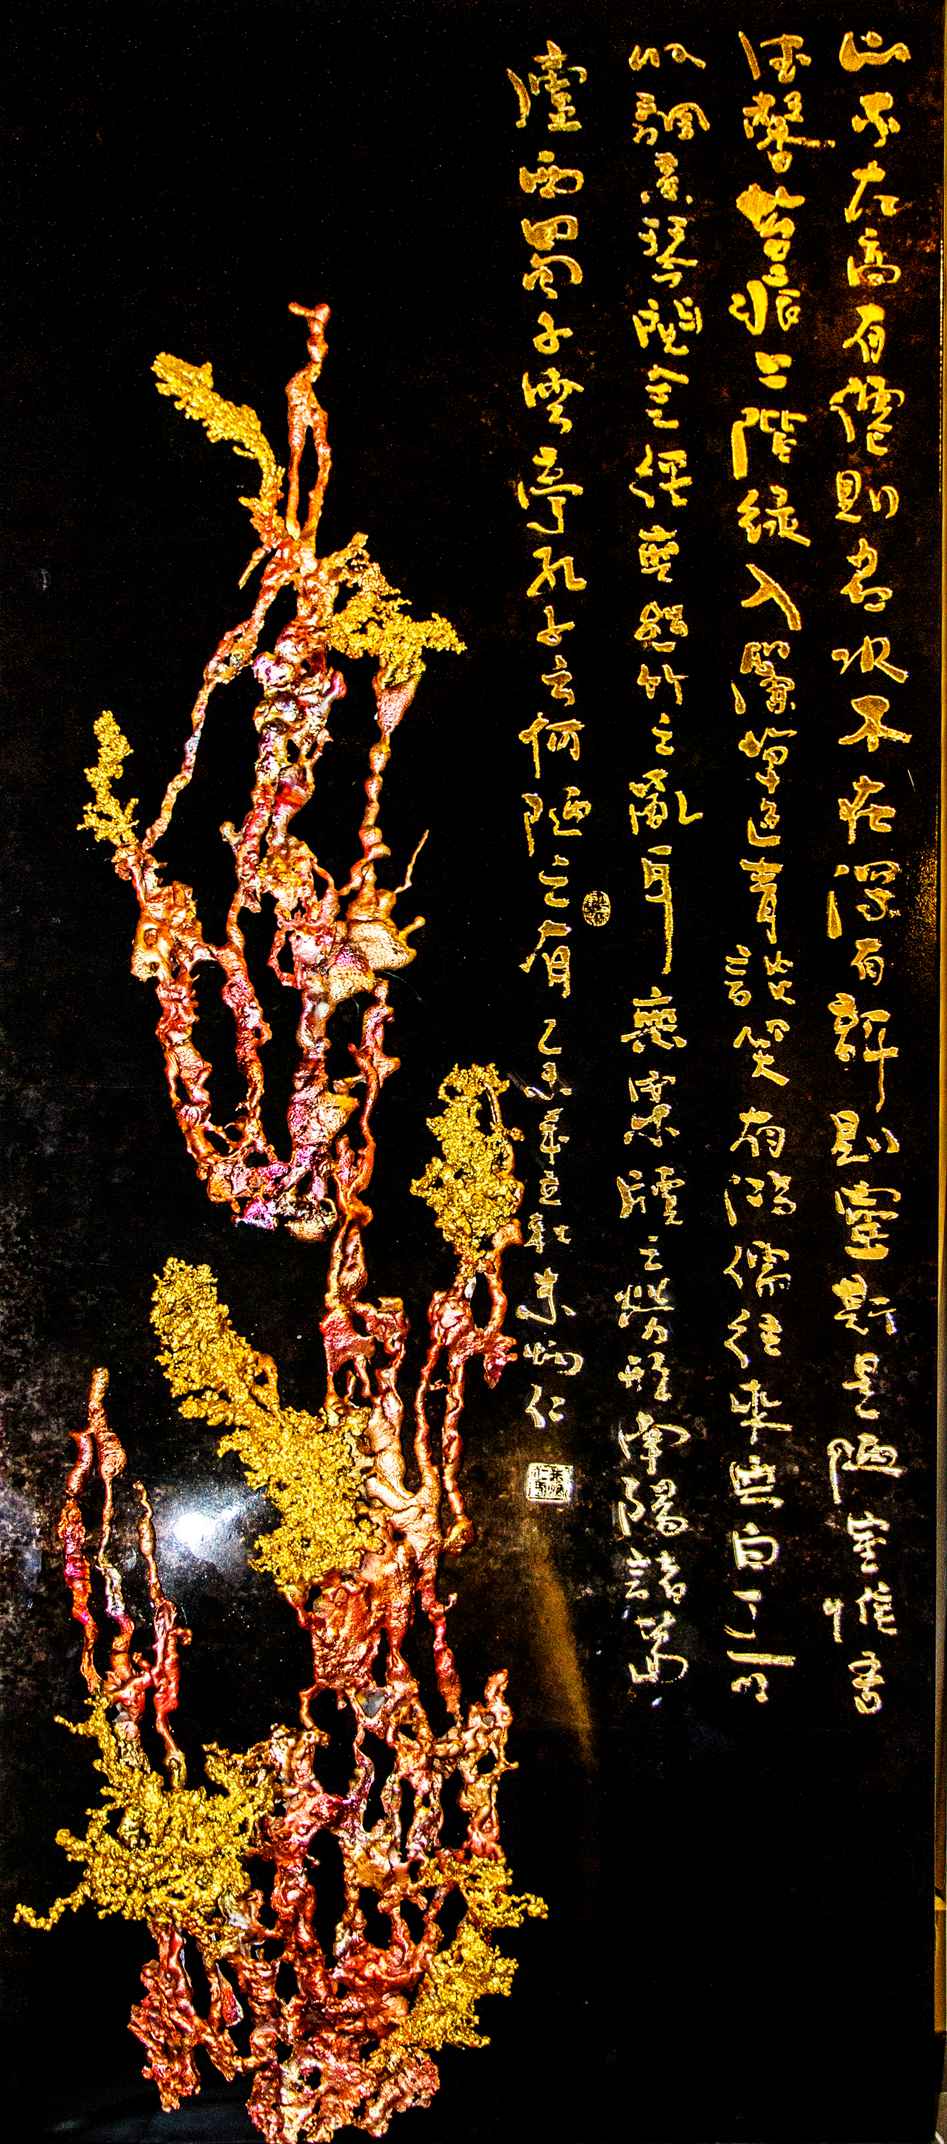 山不在高有僊則名水不在深有龍則靈斯是陋室惟吾
德馨苔痕上階綠入簾草色青談笑有鴻儒往來無白丁可
以調素琴閱金經無絲竹之亂耳無案牘之勞形南陽諸葛
廬西蜀子雲亭孔子云何陋之有 乙未年立秋朱炳仁